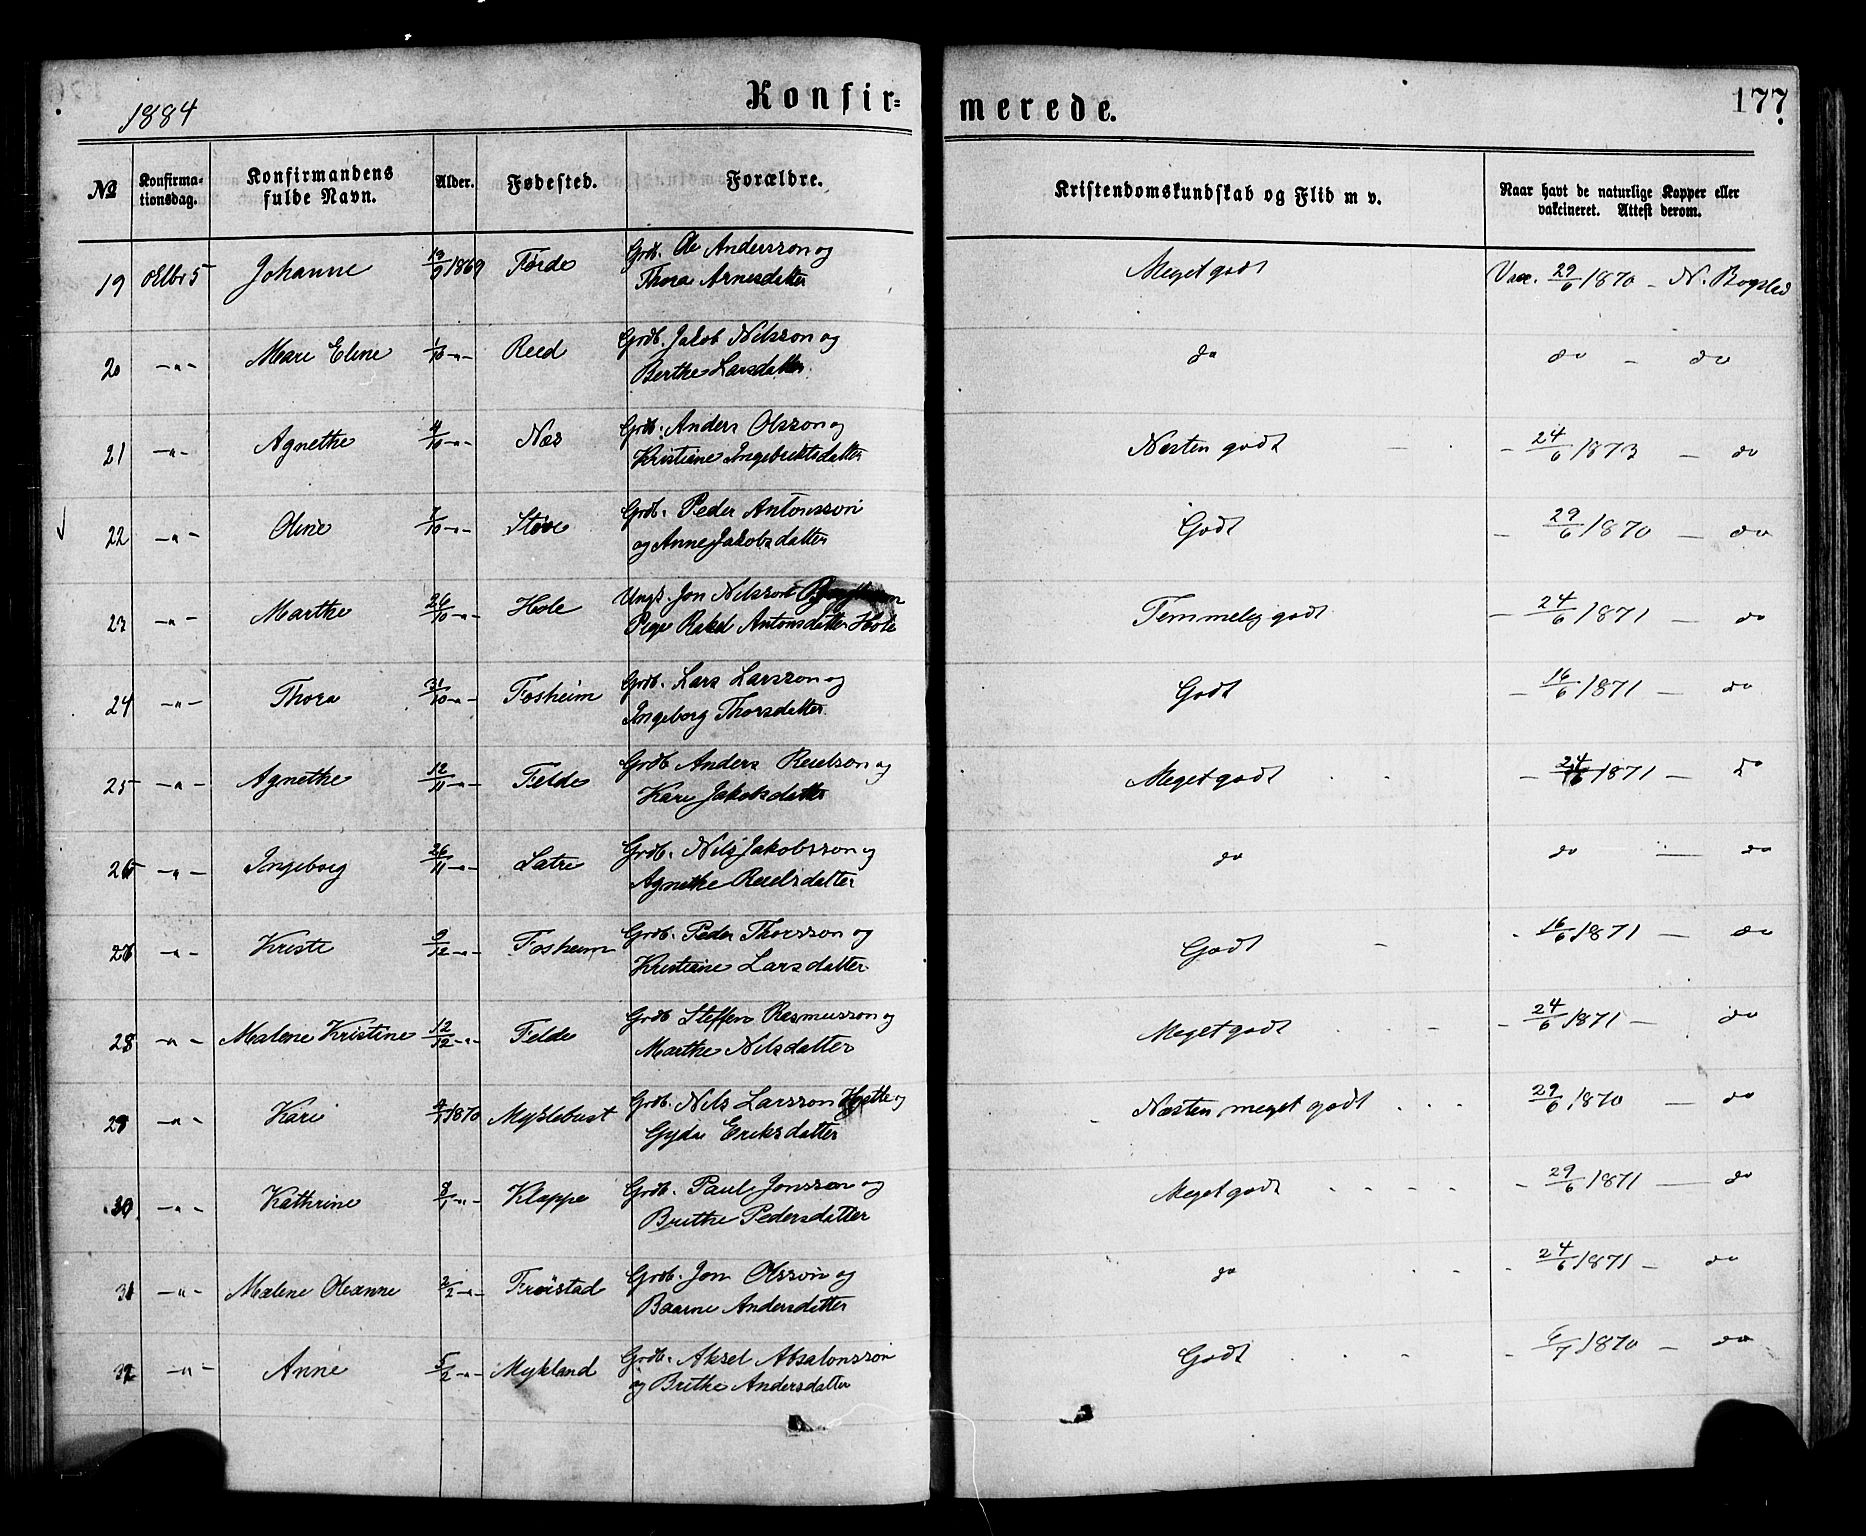 1884 Konfirmerede. 177.
№ Konfirmationsdag. Konfirmandens fulde Navn. Alder. Fødested. Forældre. Kristendomskundskab og Flid m v. Naar havt de naturlige Kopper eller vakcineret. Attest derom.
19 Johanne 19/9 1869 Førde Grdb. Ole Andersson og Meget godt Vac. 29/6 1870 - N. Bogstad
Thora Arnesdatter
20 -"- Mari Eline 1/10 -"- Reed Grdb. Jakob Nilsson og do do - do
Berthe Larsdatter.
21 -"- Agnethe 4/10 -"- Nes Grdb. Anders Olsson og Næsten godt - 24/6 1873 - do
Kristiane Ingebrektsdatter
22 -"- Oline 7/10 -"- Støve Grdb. Peder Antonsson Godt - 29/6 1870 - do
og Anne Jakobsdatter
23 -"- Marthe 26/10 -"- Hole Ungk. Jon Nilsson Temmelig godt - 24/6 1871 - do
Pige Rakel Antonsdatter Hole
24 -"- Thora 31/10 -"- Fosheim Grdb. Lars Larsson og Godt - 16/6 1871 - do
Ingeborg Thorsdatter.
25 -"- Agnethe 12/11 -"- Felde Grdb. Anders Reielson og Meget godt - 24/6 1871 - do
Kari Jakobsdatter
26 -"- Ingeborg 26/11 -"- Satre Grdb. Nils Jakobsson og do do - do
Agnethe Reielsdatter
27 -"- Kristi 9/12 -"- Fosheim Grdb. Peder Thorsson og Godt - 16/6 1871 - do
Kristiane Larsdatter.
28 -"- Malene Kristine 12/12 -"- Felde Grdb. Steffen Rasmusson og Meget godt - 24/6 1871 - do
Marthe Nilsdatter
29 -"- Kari 1870 Myklebust Grdb. Nils Larsson og Næsten meget godt 29/6 1870 - do
Gyda Eriksdatter
30 -"- Kathrine 8/1 -"- Kleppe Grdb. Paul Jonsson og Meget godt - 29/6 1871 - do
Brithe Pedersdatter
31 -"- Malene Oleanne 2/2 -"- Frøistad Grdb. Jon Olsson og do 24/6 1871 - do
Baarne Andersdatter
32 -"- Anne 5/2 -"- Mykland Grdb. Aksel Absalonsson Godt - 6/7 1870 - do
og Brithe Andersdatter